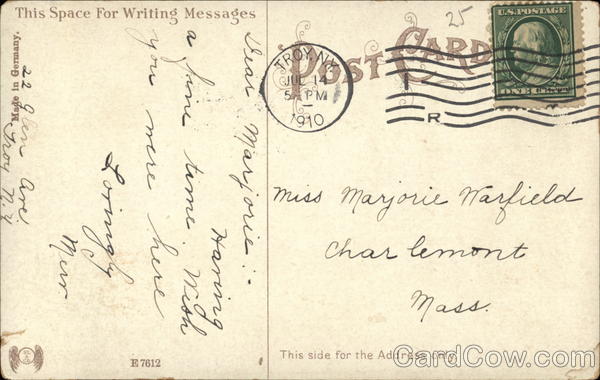 This Space For Writing Messages
POST CARD
25
U.S. POSTAGE
ONE CENT
TROY, N.Y.
JUL 14
5 PM
1910
R
Made in Germany.
22 Glen Ave.
Troy N.Y.
Dear Marjorie:-
Having
a fine time. Wish
you were here
Lovingly
Miss Marjorie Warfield
Charlemont
Mass.
E 7612
This side for the Address only.
CardCow.com